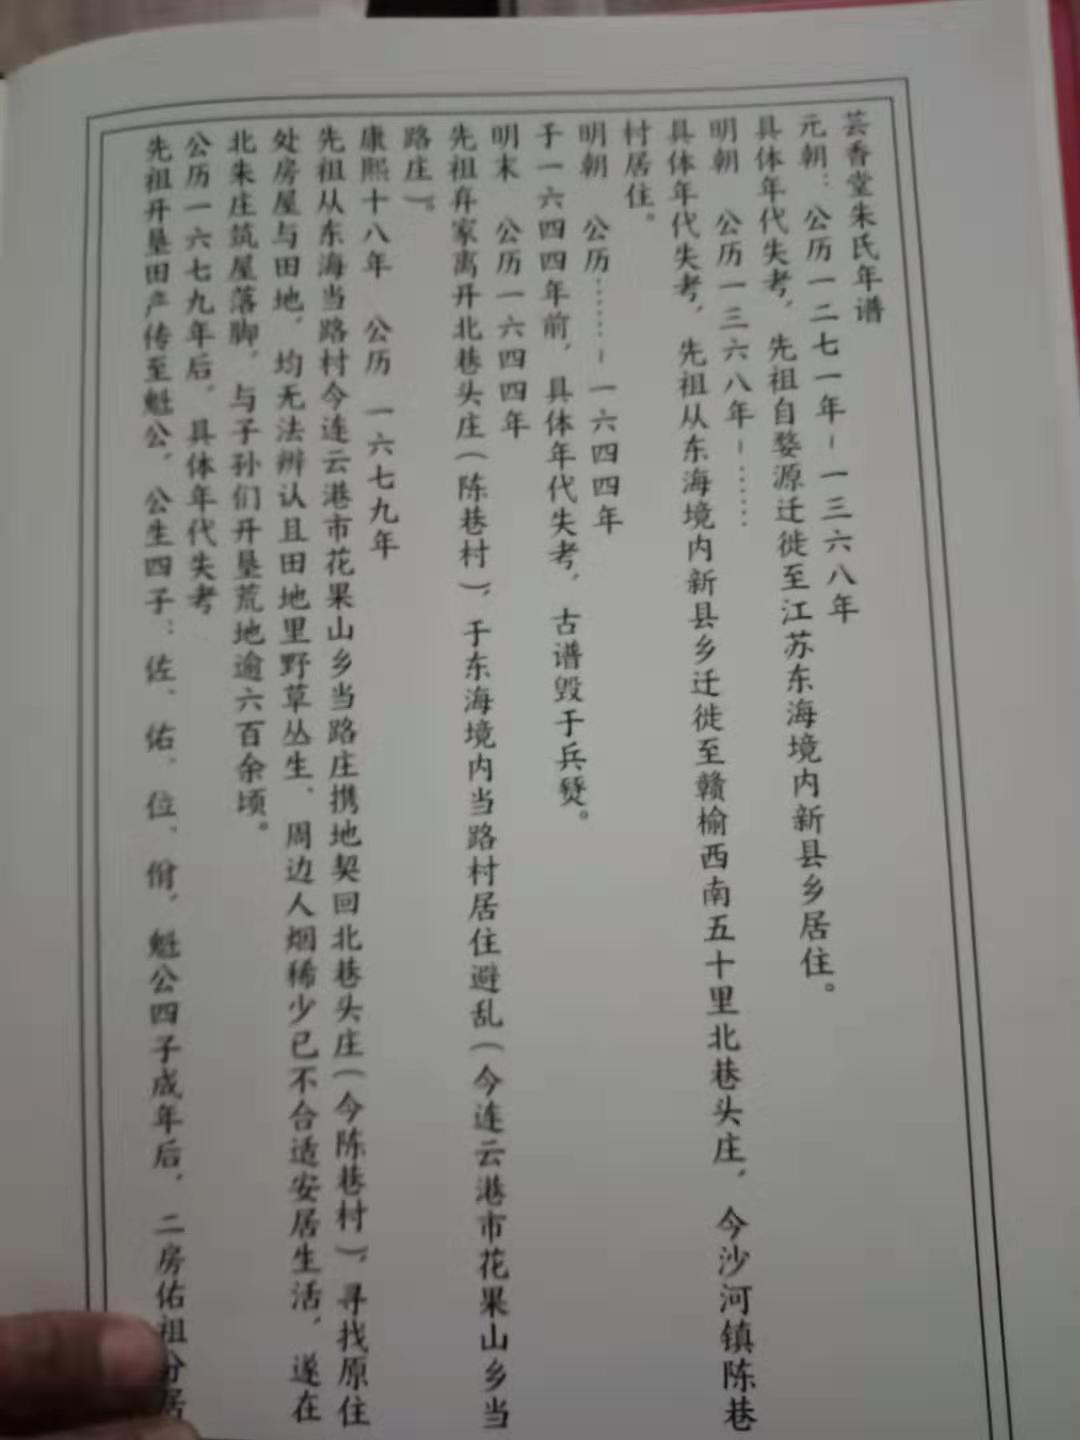 芸香堂朱氏年谱
元朝：公历一二七一年－一三六八年
具体年代失考，先祖自婺源迁徙至江苏东海境内新县乡居住。
明朝　公历一三六八年－……
具体年代失考，先祖从东海境内新县乡迁徙至赣榆西南五十里北巷头庄，今沙河镇陈巷
村居住。
明朝　公历……－一六四四年
于一六四四年前，具体年代失考，古谱毁于兵燹。
明末　公历一六四四年
先祖弃家离开北巷头庄（陈巷村），于东海境内当路村居住避乱（今连云港市花果山乡当
路庄）。
康熙十八年　公历　一六七九年
先祖从东海当路村今连云港市花果山乡当路庄携地契回北巷头庄（今陈巷村），寻找原住
处房屋与田地，均无法辨认且田地里野草丛生、周边人烟稀少已不合适安居生活，遂在
北朱庄筑屋落脚，与子孙们开垦荒地逾六百余顷。
公历一六七九年后，具体年代失考
先祖开垦田产传至魁公，公生四子：佐、佑、位、，魁公四子成年后，二房佑祖分居